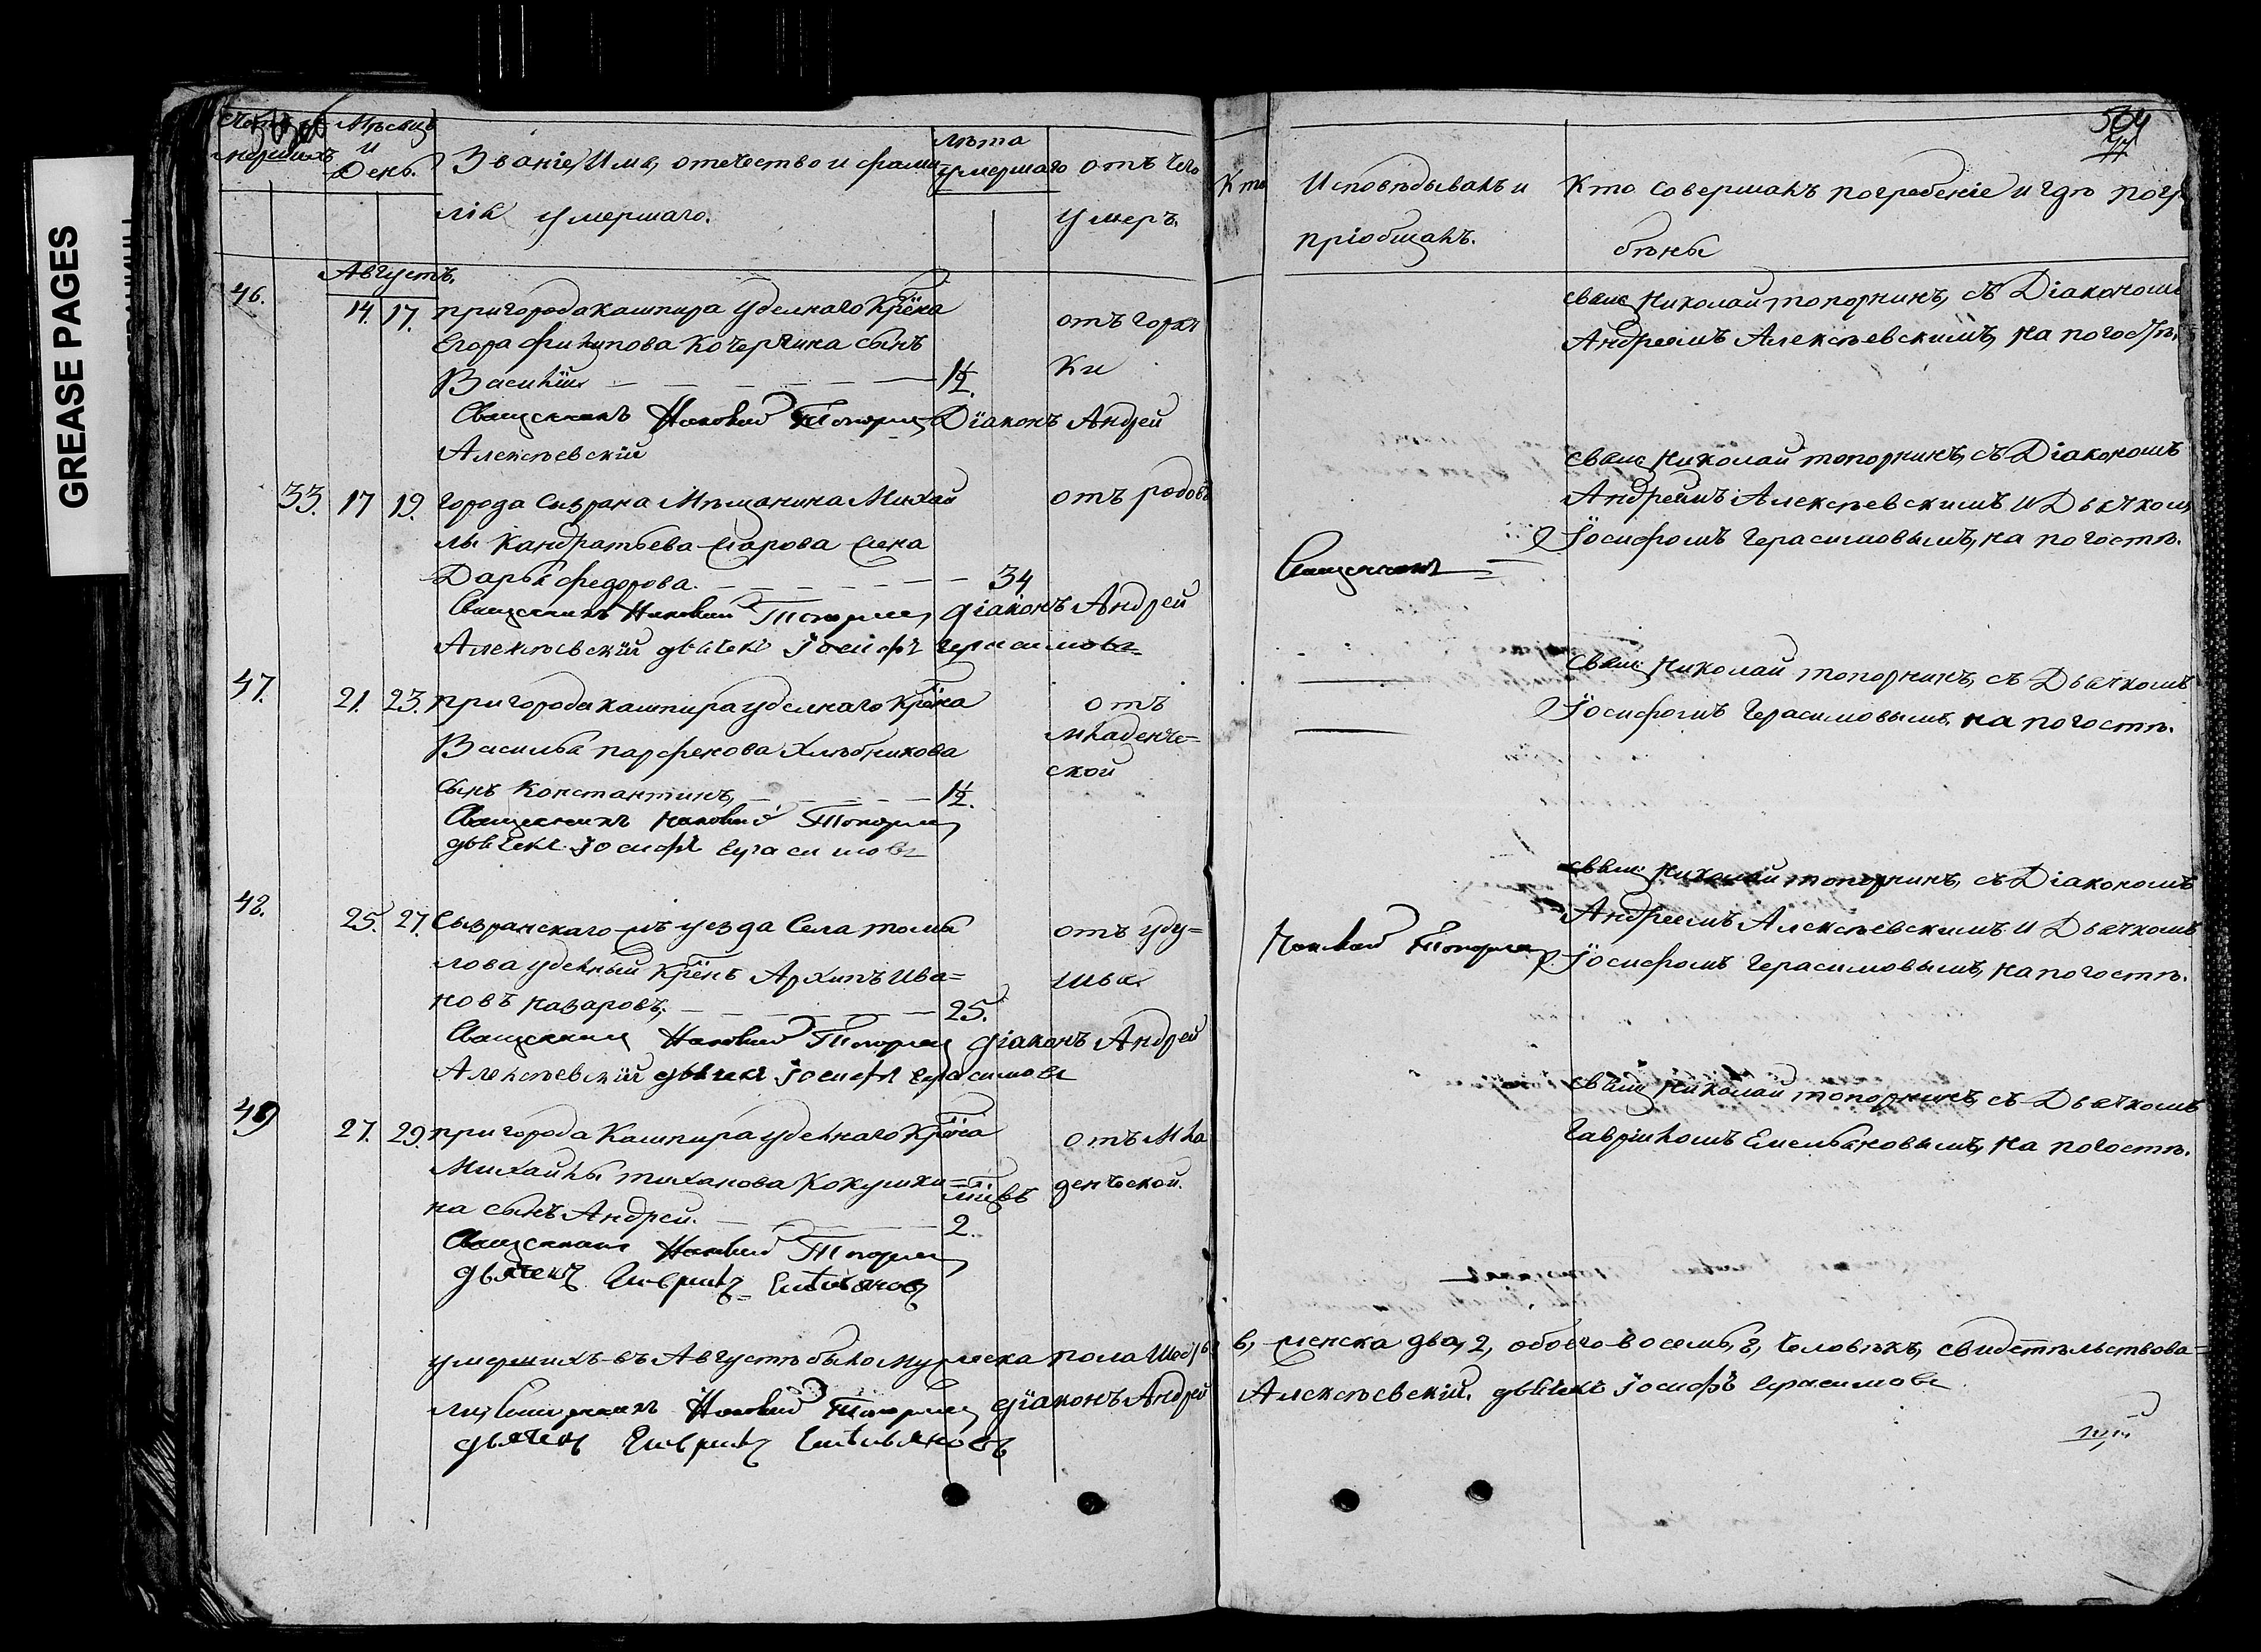 GREASE PAGES
Мѣсяцъ
и
День.
Званіе, Имя, отечество и фами
лія умершаго.
лѣта
умершаго
отъ чего
умеръ.
Кто
Исповѣдывалъ и
пріобщалъ.
Кто совершалъ погребеніе и гдѣ погре
бѣны
Августъ.
46.
14. 17. пригорода Кашпира Уделнаго Крѣна
Егора Филипова Кочергина сынъ
Василій 1½.
отъ горяч
ки
Священникъ Николай Топорнин Діаконъ Андрей
Алексѣевскій
Свящ Николай топорнинъ, съ Діакономъ
Андреемъ Алексѣевскимъ, на погостѣ.
33. 17 19. города Сызрана Мѣщанина Михай
лы Кандратьева жена
Дарья федорова. 34
отъ родовъ
Священникъ Николай Топорнин діаконъ Андрей
Алексѣевскій дьячекъ Іосифъ Герасимовъ
Священникъ
Свящ Николай топорнинъ, съ Діакономъ
Андреемъ Алексѣевскимъ и Дьячкомъ
Іосифомъ Герасимовымъ, на погостѣ.
47.
21. 23. пригорода кашпира уделнаго Крѣна
Василья парфенова Хлѣбникова
сынъ Константинъ, 1½.
отъ
младенче=
ской
Священникъ Николай Топорнин
дьячекъ Іосифъ Герасимовъ
Свящ: Николай топорнинъ, съ Дьячкомъ
Іосифомъ Герасимовымъ, на погостѣ.
48.
25. 27. Сызранскаго уезда Села томы
лова уделный Крѣнъ Архипъ Ива=
новъ Назаровъ. 25.
отъ уду=
шья.
Священник Николай Топорнин діаконъ Андрей
Алексѣевскій дьячекъ Іосифъ Герасимовъ
Николай Топорнин
Свящ: Николай топорнинъ, съ Діакономъ
Андреемъ Алексѣевскимъ и Дьячкомъ
Іосифомъ Герасимовымъ, на погостѣ.
49
27. 29. пригорода Кашпира уделнаго Крѣна
Михайлы тиханова Кокушки=
на сынъ Андрей. 2.
отъ мла
денческой.
Священникъ Николай Топорнин
дьячекъ Гаврилъ Емельяновъ
Свящ Николай топорнинъ, съ Дьячкомъ
Гавриломъ Емельяновымъ, на погостѣ.
умершихъ въ Августѣ было мужеска пола шесть 6, женска два, 2, обоего восемь, 8, человѣкъ, свидѣтельствова=
ли, Священникъ Николай Топорнин діаконъ Андрей Алексѣевскій, дьячекъ Іосифъ Герасимовъ
дьячекъ Гаврилъ Емельяновъ